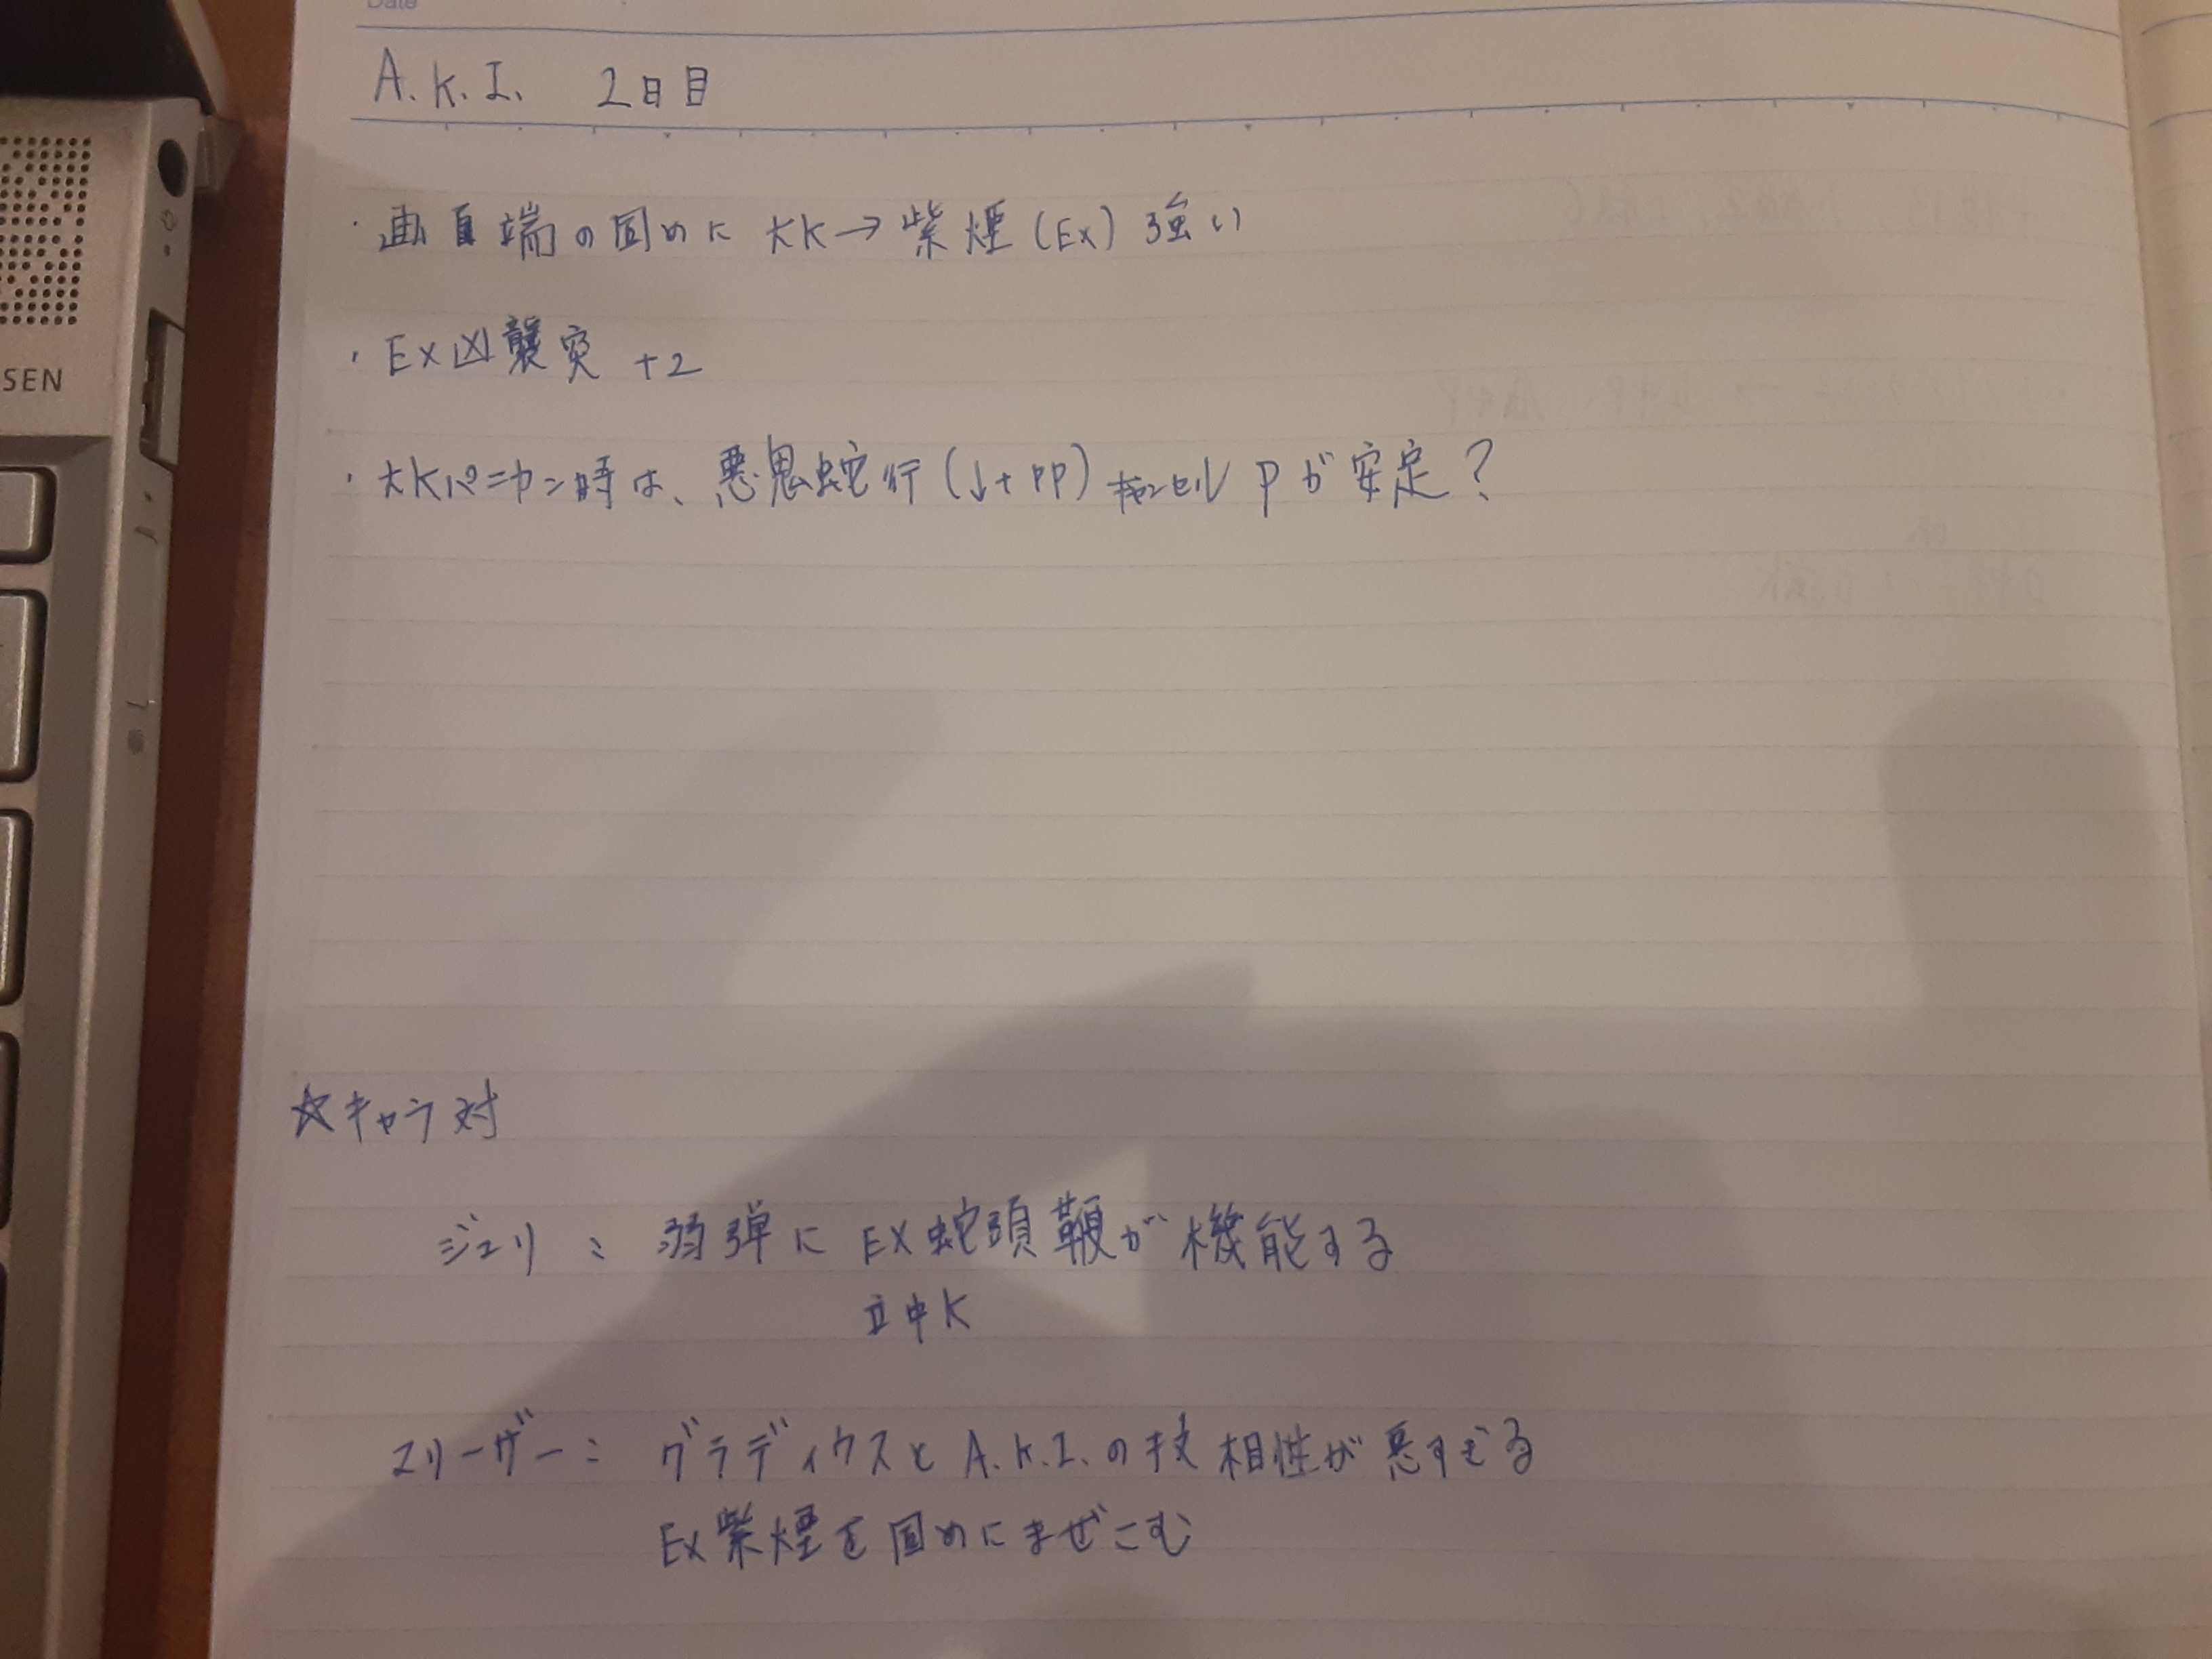 Date
A.K.I. 2日目
・画面端の固めに 大K→紫煙(Ex) 強い
・Ex凶襲突 +2
・大Kパニカン時は、悪鬼蛇行(↓+PP) キャンセル Pが安定?
☆キャラ対
ジュリ: 弱弾に EX蛇頭鞭が機能する
立中K
マリーザー: グラディウスと A.K.I.の技 相性が悪すぎる
Ex紫煙を固めにまぜこむ
SEN